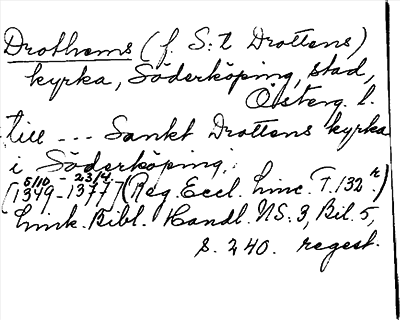 Drothems (f. S:t Drottens)
kyrka, Söderköping, stad,
Österg. l.
till --- Sankt Drottens kyrka
i Söderköping,
6/10 - 23/4
[1349-1377] (Reg. Eccl. Linc. T. 132 r.)
Link. Bibl. Handl. NS. 3, Bil. 5,
s. 240. regest.